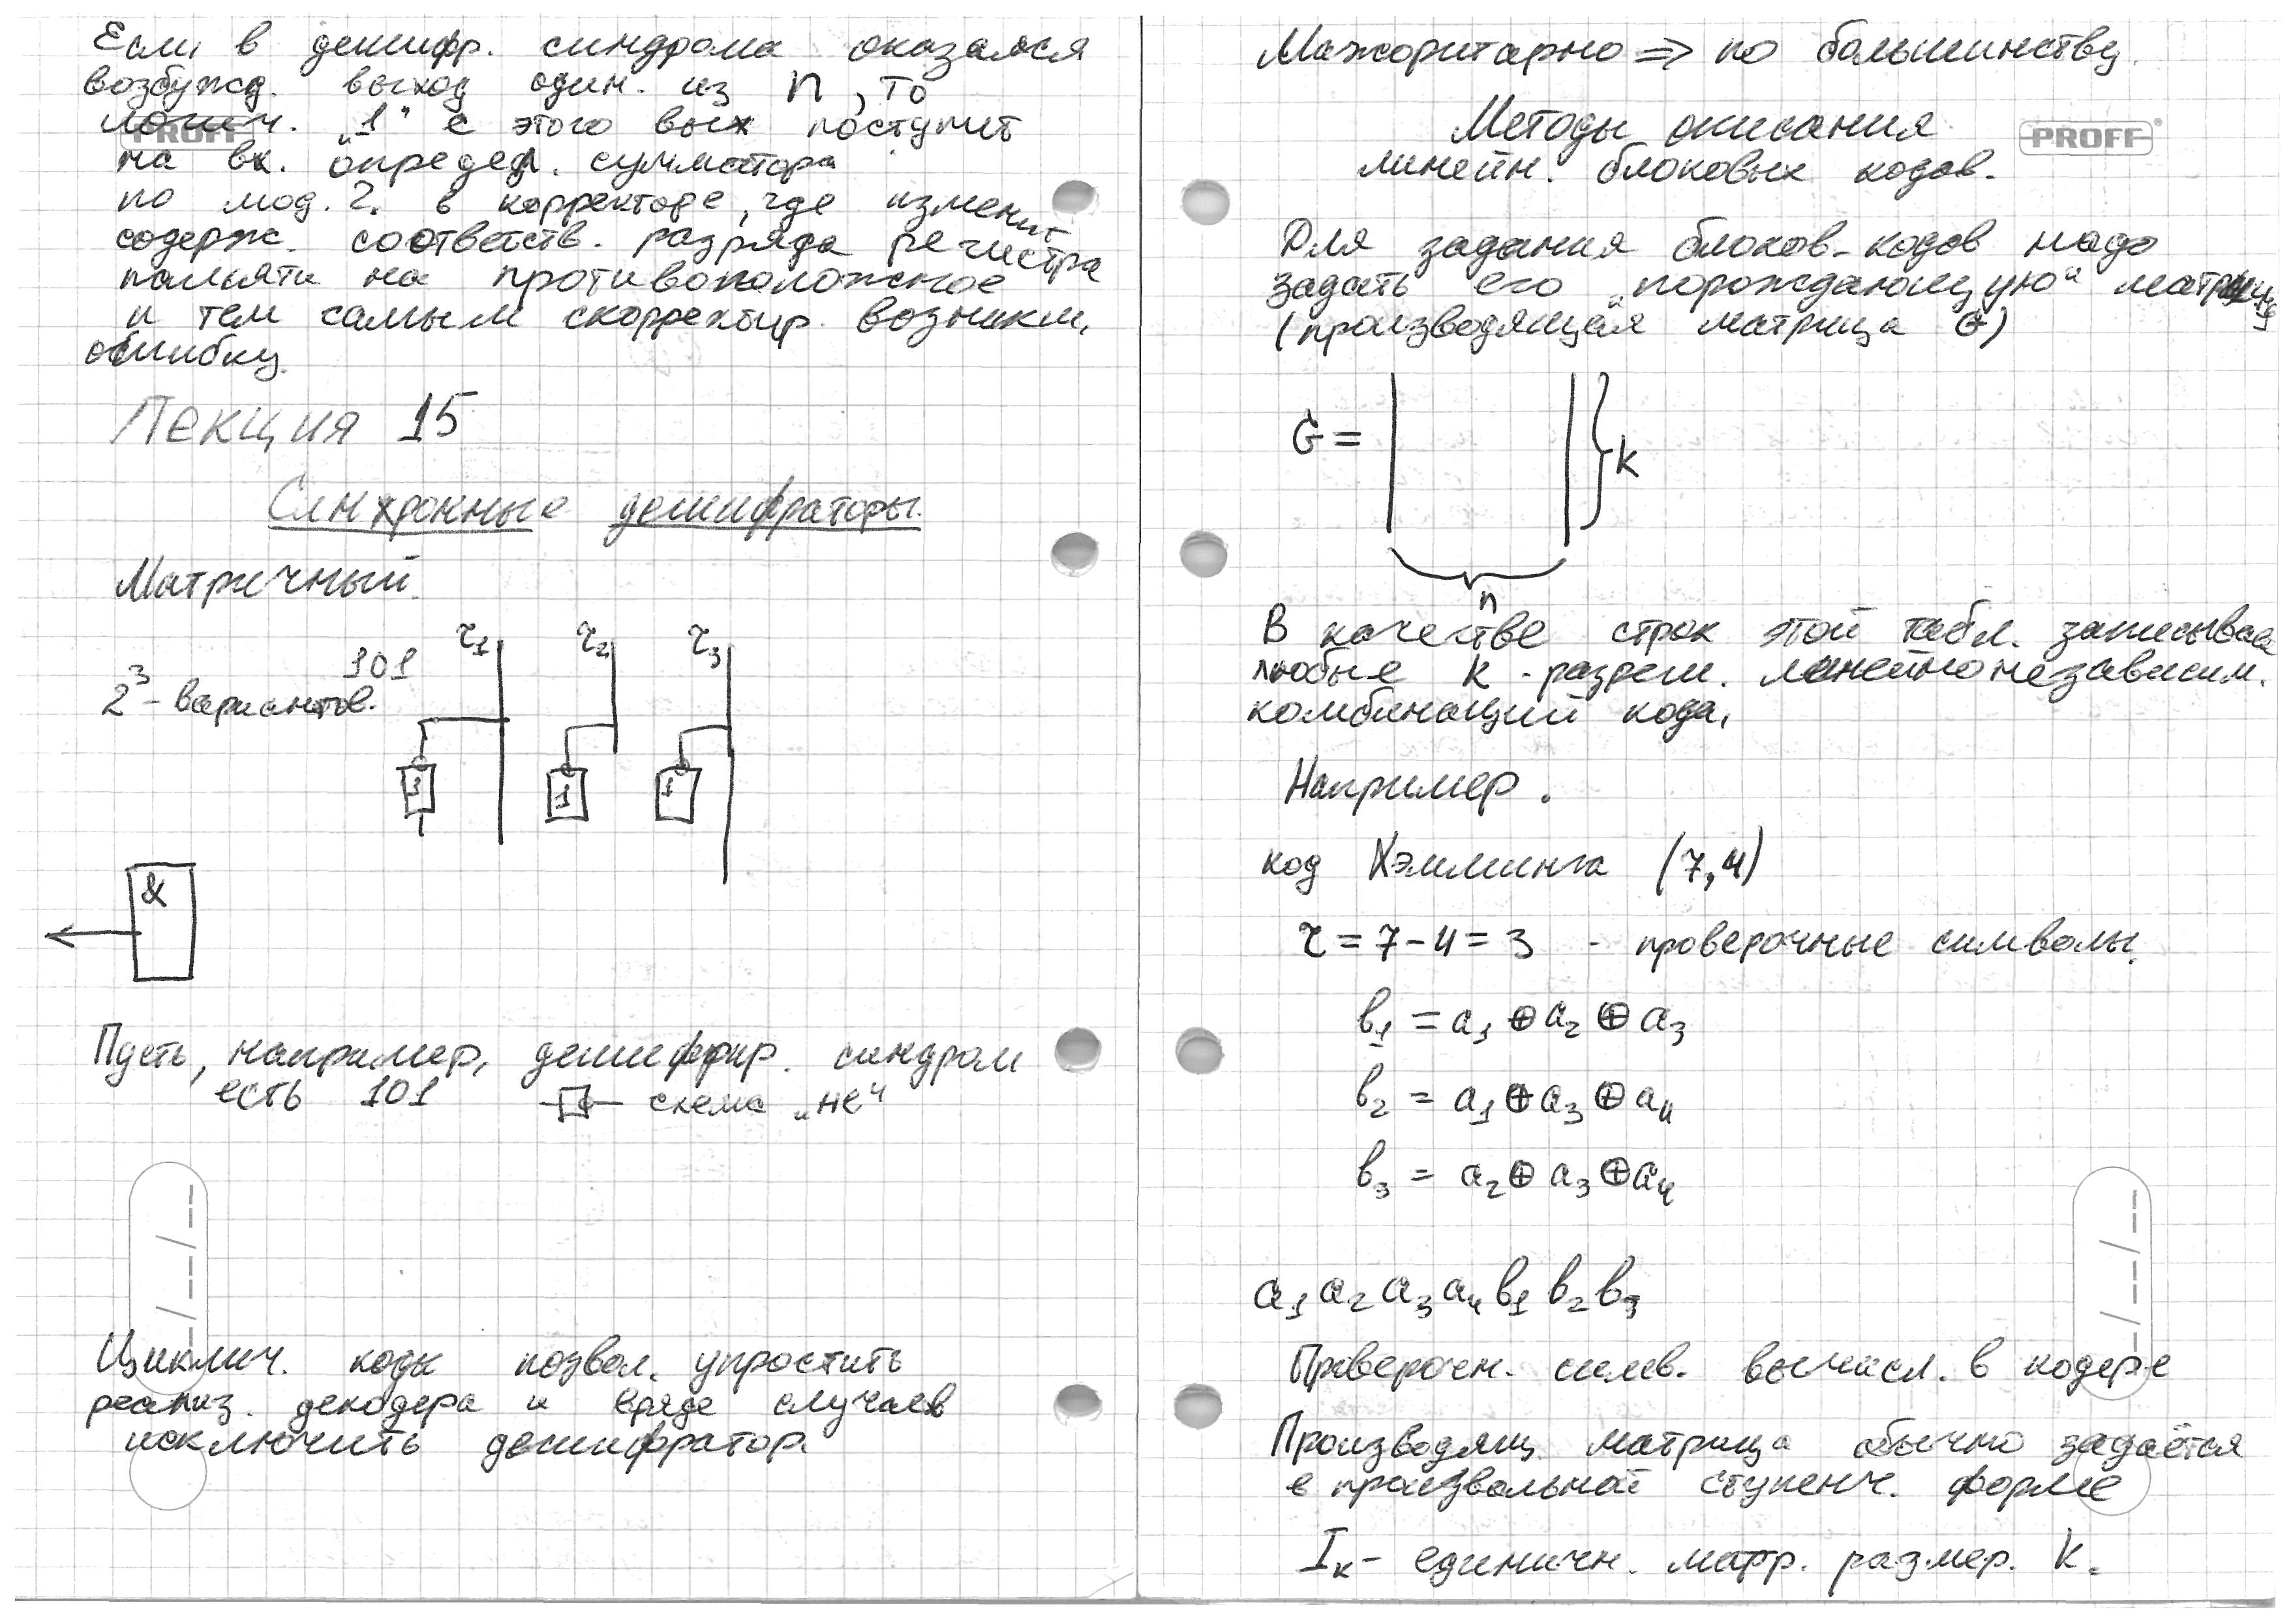 Если в дешифр. синдрома оказался
возбужд. выход один. из n, то
логич. „1" с этого вых поступит
на вх. определ. сумматора
по мод. 2. в корректоре, где изменит
содерж. соответств. разряда регистра
памяти на противоположное
и тем самым скорректир. возникш.
ошибку.
Лекция 15
Синхронные дешифраторы.
Матричный.
τ1 τ2 τ3
101
2³ - вариантов.
1 1 1
&
Пусть, например, дешифрир. синдром
есть 101 схема „не"
Циклич. коды позвол. упростить
реализ. декодера и вряде случаев
исключить дешифратор.
Мажоритарно => по большинству.
PROFF
Методы описания
линейн. блоковых кодов.
PROFF®
Для задания блоков-кодов надо
задать его „порождающую" матрицу
(производящая матрица G)
G = k
n
В качестве строк этой табл. записываем
любые k - разреш. линейнонезависим.
комбинаций кода.
Например.
код Хэмминга (7,4)
τ = 7 - 4 = 3 - проверочные символы.
b1 = a1 ⊕ a2 ⊕ a3
b2 = a1 ⊕ a3 ⊕ a4
b3 = a2 ⊕ a3 ⊕ a4
a1 a2 a3 a4 b1 b2 b3
Проверочн. симв. вычисл. в кодере
Производящ. матрица обычно задаётся
в произвольной ступенч. форме
Iк - единичн. матр. размер. k.